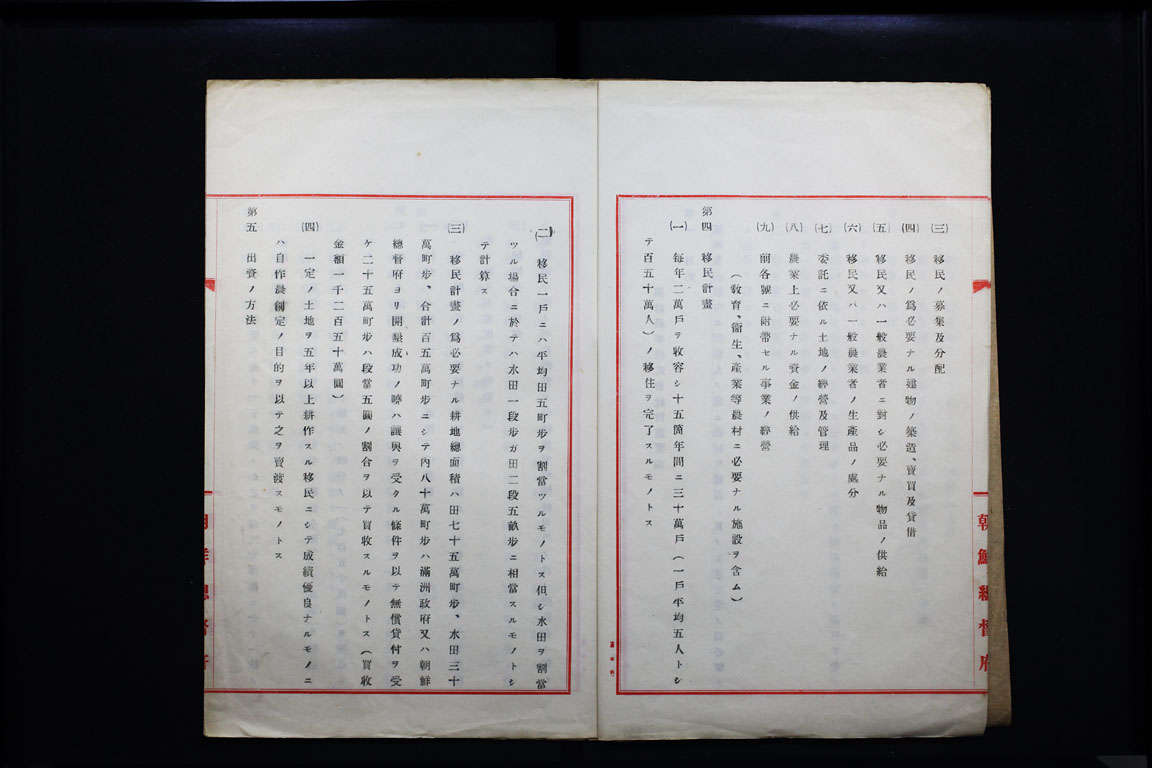 ㈢ 移民ノ募集及分配
㈣ 移民ノ爲必要ナル建物ノ築造、賣買及貸借
㈤ 移民又ハ一般農業者ニ對シ必要ナル物品ノ供給
㈥ 移民又ハ一般農業者ノ生產品ノ處分
㈦ 委託ニ依ル土地ノ經營及管理
㈧ 農業上必要ナル資金ノ供給
㈨ 前各號ニ附帶セル事業ノ經營
(敎育、衞生、產業等農村ニ必要ナル施設ヲ含ム)
第四 移民計畫
㈠ 每年二萬戶ヲ收容シ十五箇年間ニ三十萬戶(一戶平均五人トシ
テ百五十萬人)ノ移住ヲ完了スルモノトス
朝鮮總督府
㈡ 移民一戶ニハ平均田五町步ヲ割當ツルモノトス但シ水田ヲ割當
ツル場合ニ於テハ水田一段步ガ田二段五畝步ニ相當スルモノトシ
テ計算ス
㈢ 移民計畫ノ爲必要ナル耕地總面積ハ田七十五萬町步、水田三十
萬町步、合計百五萬町步ニシテ內八十萬町步ハ滿洲政府又ハ朝鮮
總督府ヨリ開墾成功ノ曉ハ讓與ヲ受クル條件ヲ以テ無償貸付ヲ受
ケ二十五萬町步ハ段當五圓ノ割合ヲ以テ買收スルモノトス(買收
金額一千二百五十萬圓)
㈣ 一定ノ土地ヲ五年以上耕作スル移民ニシテ成績優良ナルモノニ
ハ自作農創定ノ目的ヲ以テ之ヲ賣渡スモノトス
第五 出資ノ方法
朝鮮總督府